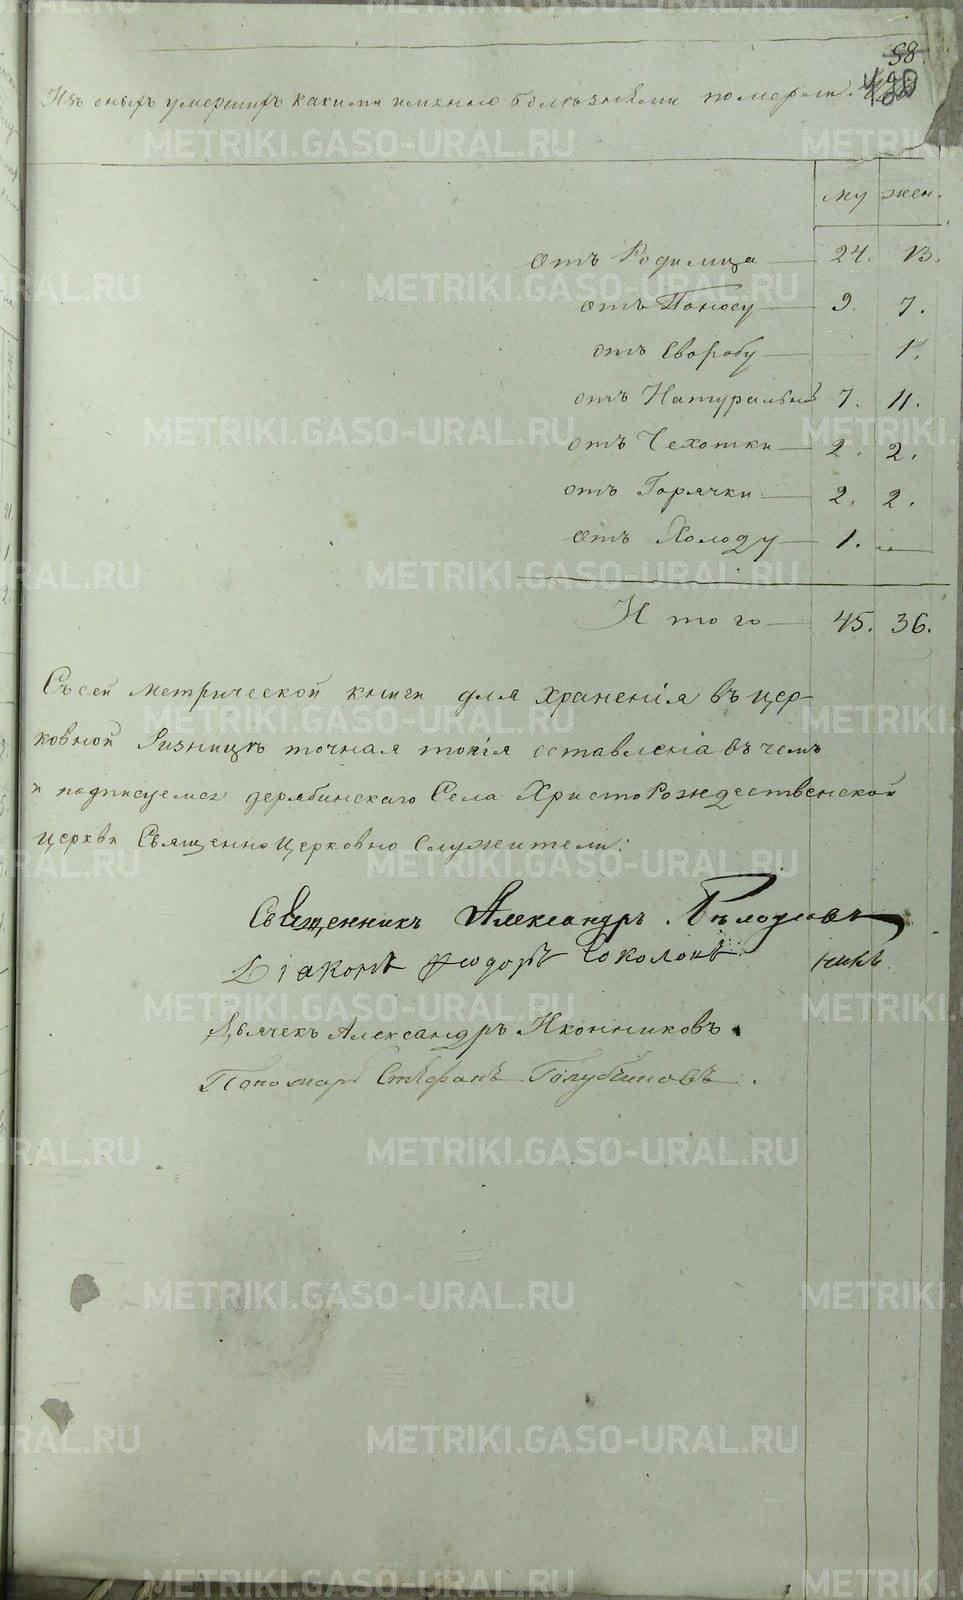 58.
Изъ оныхъ умершихъ какими именно болѣзнями померли.
му жен.
отъ Родимца 24. 13.
отъ Поносу 9. 7.
отъ Своробу 1.
отъ Натуральной 7. 11.
отъ Чехотки 2. 2.
отъ Горячки 2. 2.
отъ Холоду 1. —
Итого 45. 36.
Съ сей метрической книги для хранения въ цер-
ковной Ризницѣ точная копія оставлена въ чемъ
и подписуемся дерябинскаго Села Христорождественской
церкви Священно Церковно Служители:
Священникъ Александръ
Діаконъ Феодоръ Соколовъ
никъ
Дьячекъ Александръ Иконниковъ.
Пономарь Стефанъ Голубчиковъ.
METRIKI.GASO-URAL.RU